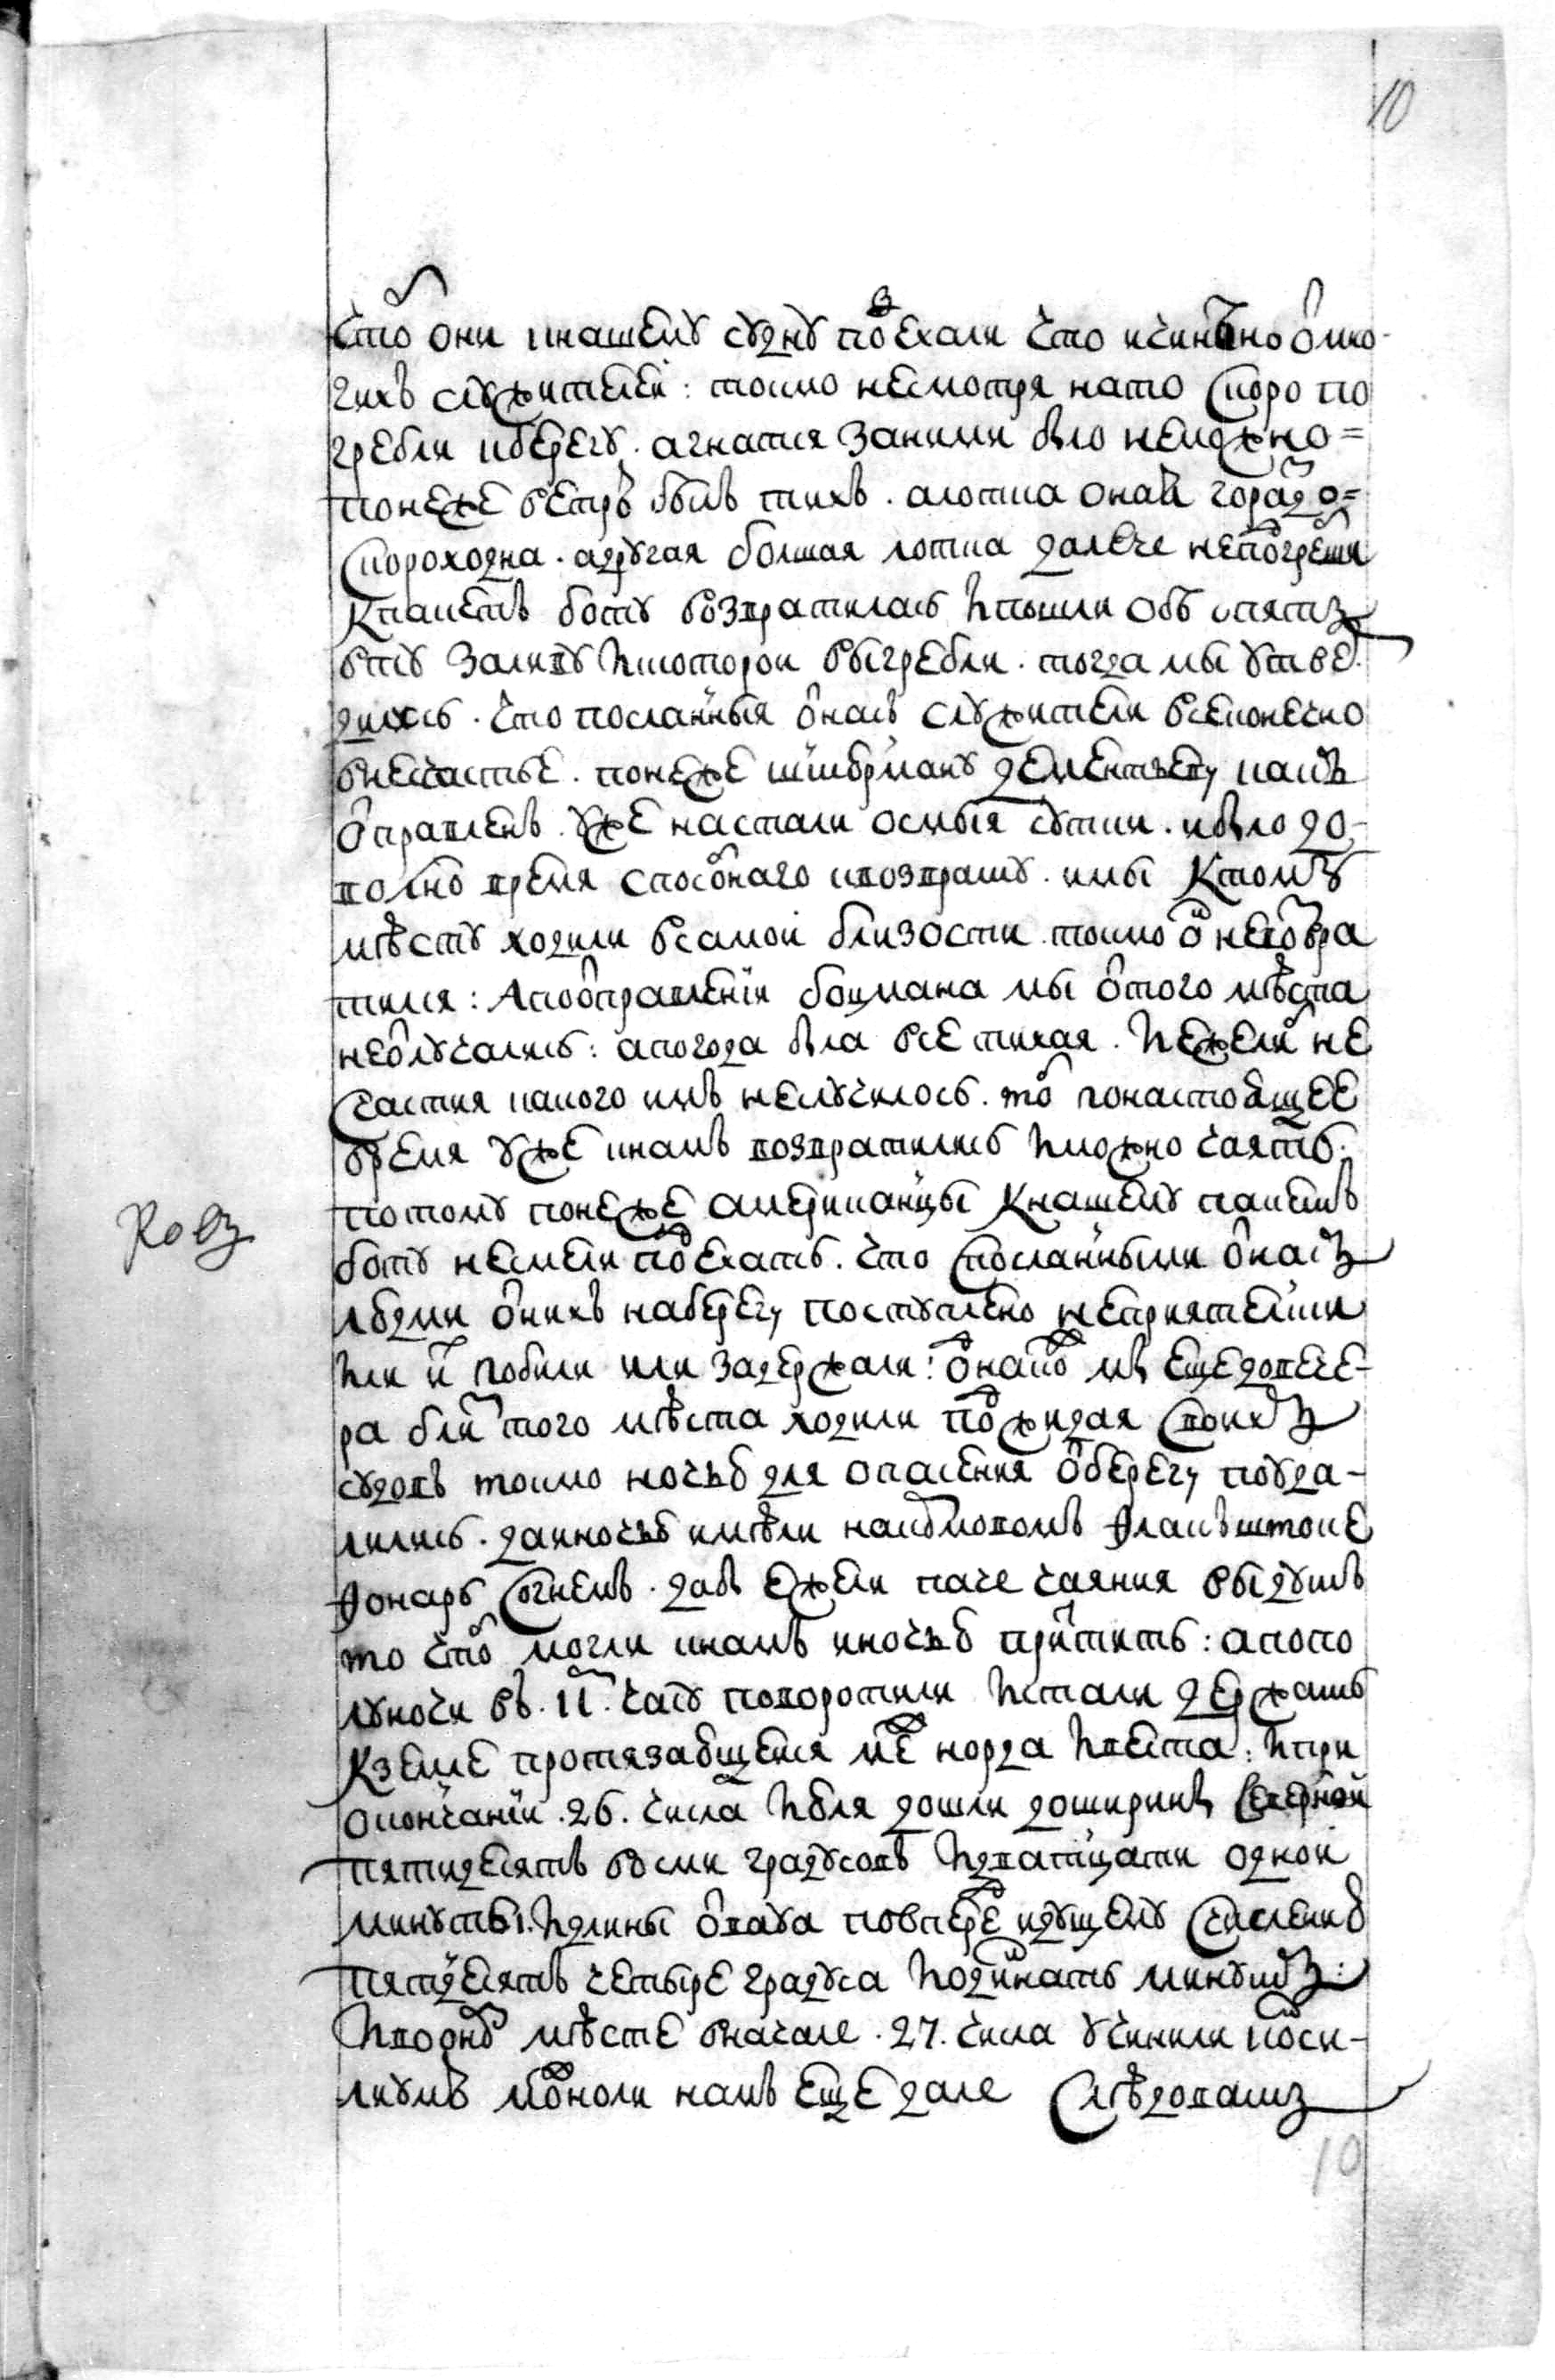 10
чтоб они кнашему судну подъехали что и учинено от мно-
гихъ служителей: токмо несмотря нато скоро по
гребли кберегу. агнатся заними было неможно=
понеже ветръ былъ тихъ. алотка оная гораздо=
скороходна. адругая болшая лотка далече неподгребши
кпакетъ боту возвратилась ипошли обе опять
вту заливу искоторой выгребли. тогда мы утвер-
дились. что посланныя отнасъ служители всеконечно
внещастье. понеже штюрману дементьеву какъ
отправленъ. уже настали осмыя сутки. ибыло до-
волно время способнаго квозврату. имы ктому
месту ходили всамой близости токмо он невозвра
тился: апоотправлении боцмана мы оттого места
неотлучались: апогода была все тихая. иежели бы не
счастия какого имъ неслучилось. тоб понастоящее
время уже кнамъ возвратились иможно чаять.
потому понеже американцы кнашему пакетъ
боту несмели подъехать. что спосланными отнасъ
людми отнихъ наберегу поступлено неприятелски
или их побили или задержали: однакож мы ещедовече-
ра близ того места ходили поджидая своихъ
судовъ токмо ночью для опасения отберегу поуда-
лились. даиночью имели накормовомъ флакъштоке
фонарь согнемъ. дабы ежели паче чаяния выдутъ
то чтоб могли кнамъ иночью притить: апопо
луночи въ. 11 м. часу поворотили истали держать
кземле протязающеися меж норда ивеста: ипри
окончании. 26. числа июля дошли доширины северной
пятидесятъ восми градусовъ идватцати одной
минуты. идлины отвауа повпередидущему счислению
пятдесятъ четыре градуса иодиннатъ минутъ:
ивоономъ месте вначале. 27. числа учинили конси-
лиумъ можноли намъ еще дале следовать
Ковз
10